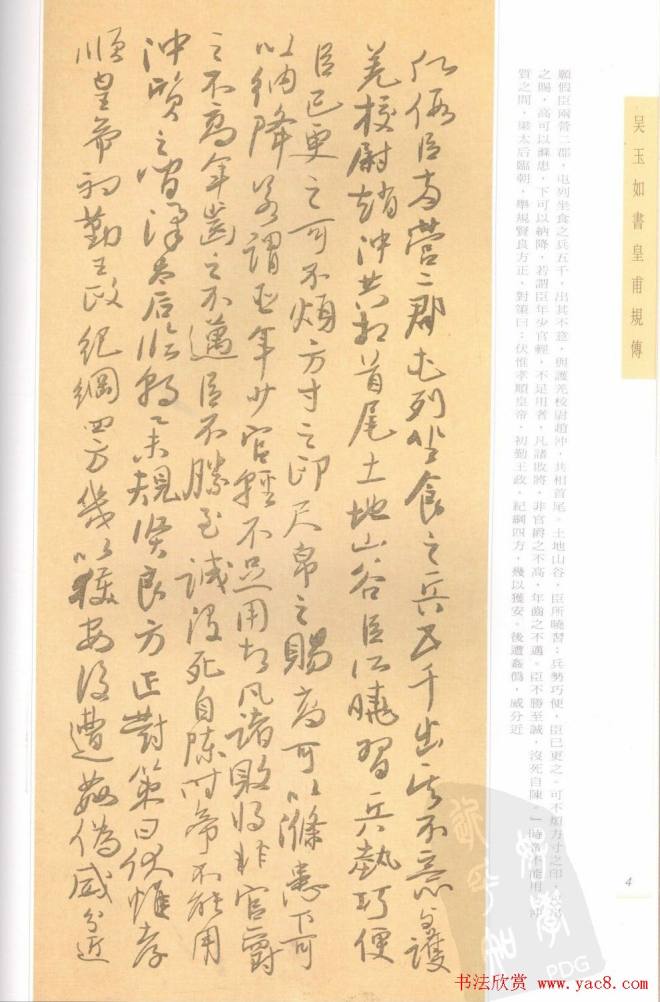 吴玉如書皇甫規傳
願假臣兩營二郡，屯列坐食之兵五千，出其不意，與護羌校尉趙沖，共相首尾。土地山谷，臣所曉習；兵勢巧便，臣已更之。可不煩方寸之印，尺帛
之賜，高可以滌患，下可以納降。若謂臣年少官輕，不足用者，凡諸敗將，非官爵之不高，年齒之不邁。臣不勝至誠，沒死自陳。」時帝不能用。沖
質之間，梁太后臨朝，舉規賢良方正，對策曰：伏惟孝順皇帝，初勤王政，紀綱四方，幾以獲安。後遭姦僞，威分近
4
仮假臣兩營二郡屯列坐食之兵五千出其不意与護
羌校尉趙沖共相首尾土地山谷臣所曉習兵勢巧便
臣已更之可不煩方寸之印尺帛之賜高可以滌患下可
以納降若謂臣年少官輕不足用者凡諸敗將非官爵
之不高年齒之不邁臣不勝至誠沒死自陳時帝不能用
沖質之間梁太后臨朝舉規賢良方正對策曰伏惟孝
順皇帝初勤王政紀綱四方幾以獲安後遭姦偽威分近
PDG
书法欣赏 www.yac8.com